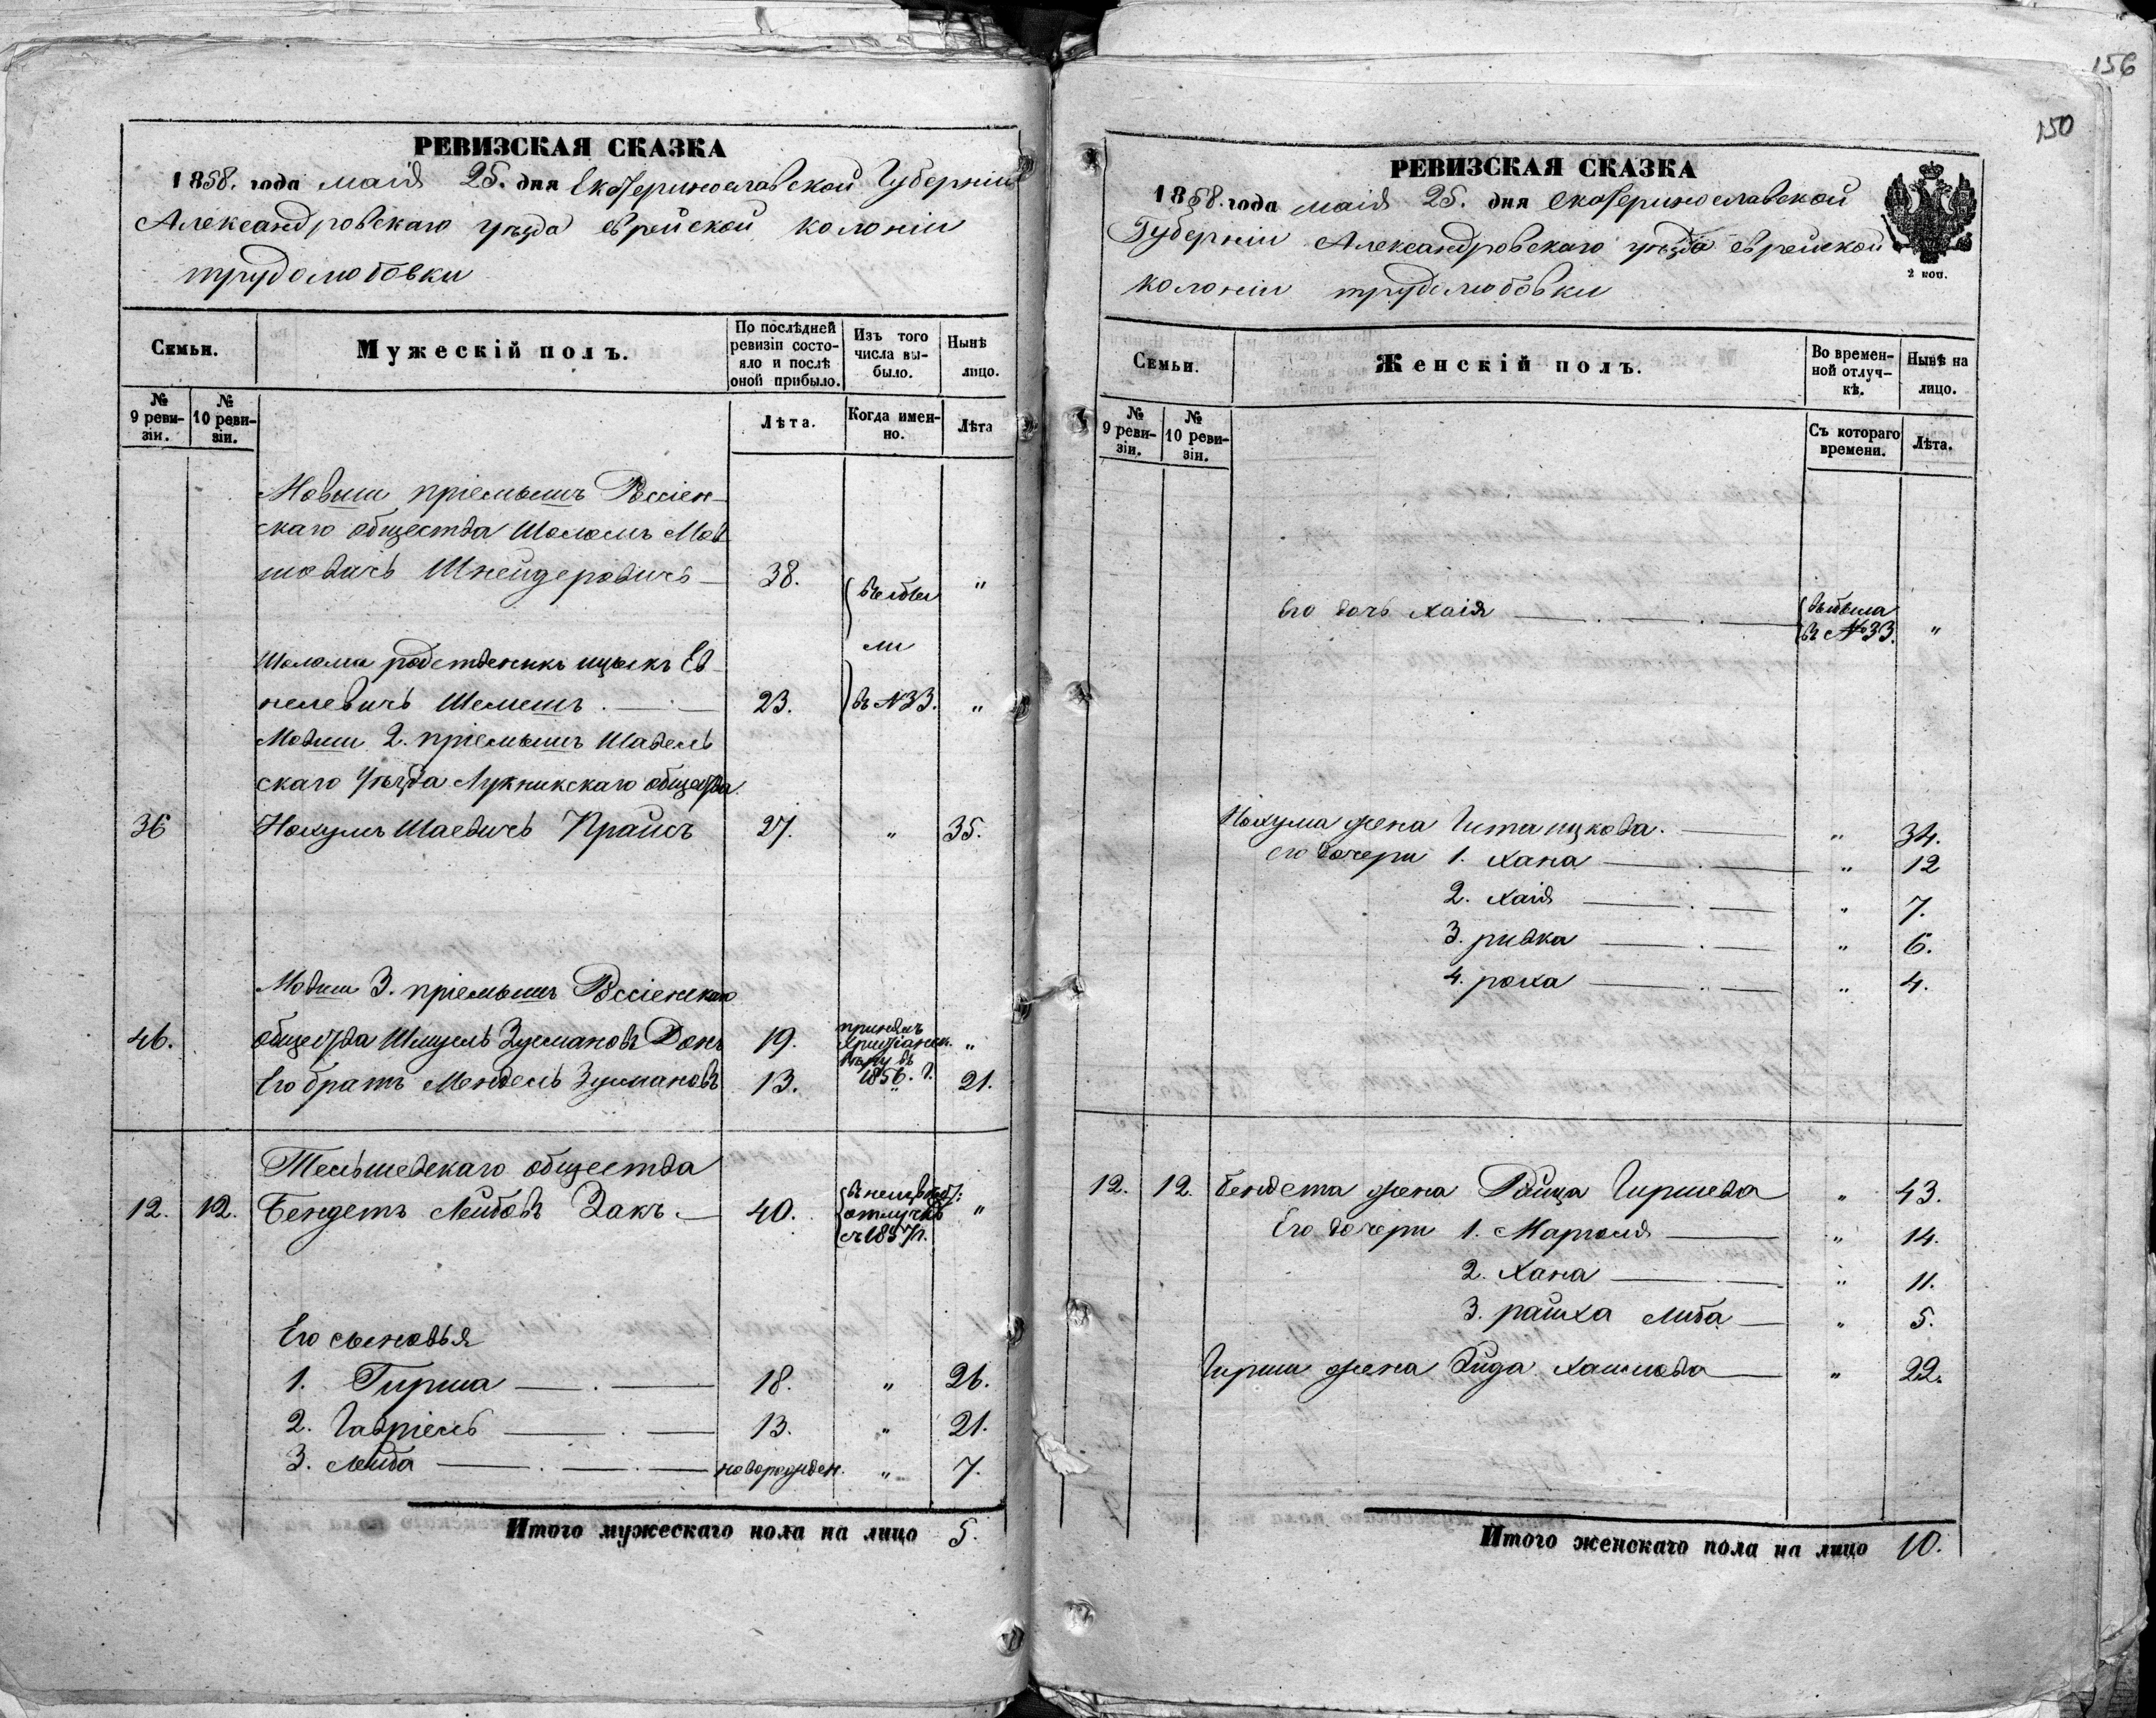 РЕВИЗСКАЯ СКАЗКА
1858. года маія 25. дня Екатеринославской Губерніи
Александровскаго уѣзда еврейской колоніи
трудолюбовки
Семьи.
Мужескій полъ.
По послѣдней ревизіи состояло и послѣ оной прибыло.
Изъ того числа выбыло.
Нынѣ лицо.
№ 9 ревизіи.
№ 10 ревизіи.
Лѣта.
Когда именно.
Лѣта
Мовши пріемышъ Россіен-
скаго общества Шоломъ Мов
шовичъ Шнейдеровичъ 38. выбы "
ли
Шолома родственикъ ицыкъ
нелевичъ Шемешъ 23. въ №33. "
Мовши 2. пріемышъ Шавель
скаго уѣзда Лукникскаго общества
36 Нохумъ Шаевичъ Прайсъ 27. " 35.
Мовши 3. пріемышъ Россіенскаго
46. общества Шмуель Зусмановъ 19. принялъ христіанск. вѣру въ 1856. г. "
Его братъ Мендель Зусмановъ 13. " 21.
Тельшевскаго общества
12. 12. Бендетъ Лейбовъ Закъ 40. отлучкѣ съ 1857г. "
Его сыновья
1. Гирша 18. " 26.
2. Гавріель 13. " 21.
3. Лейба новорожден. " 7.
Итого мужескаго пола на лицо 5.
156
150
РЕВИЗСКАЯ СКАЗКА
1858. года маія 25. дня екатеринославской
Губерніи Александровскаго уѣзда еврейской
колоніи трудолюбовки
2 коп.
Семьи.
Женскій полъ.
Во временной отлучкѣ.
Нынѣ на лицо.
№ 9 ревизіи.
№ 10 ревизіи.
Съ котораго времени.
Лѣта.
его дочь хаія выбыла
въ №33. "
Нохума жена Гита ицкова. " 34.
его дочери 1. хана " 12
2. хаія " 7.
3. ривка " 6.
4. роха " 4.
12. 12. Бендета жена Райца Гиршева " 43.
Его дочери 1. Марголя " 14.
2. Хана " 11.
3. райха либа " 5.
Гирши жена хаимова " 22.
Итого женскаго пола на лицо 10.